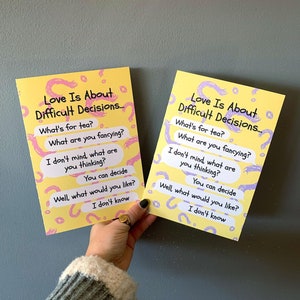 Love Is About
Difficult Decisions...
What's for tea?
What are you fancying?
I don't mind, what are
you thinking?
You can decide
Well, what would you like?
I don't know
Love Is About
Difficult Decisions...
What's for tea?
What are you fancying?
I don't mind, what are
you thinking?
You can decide
Well, what would you like?
I don't know